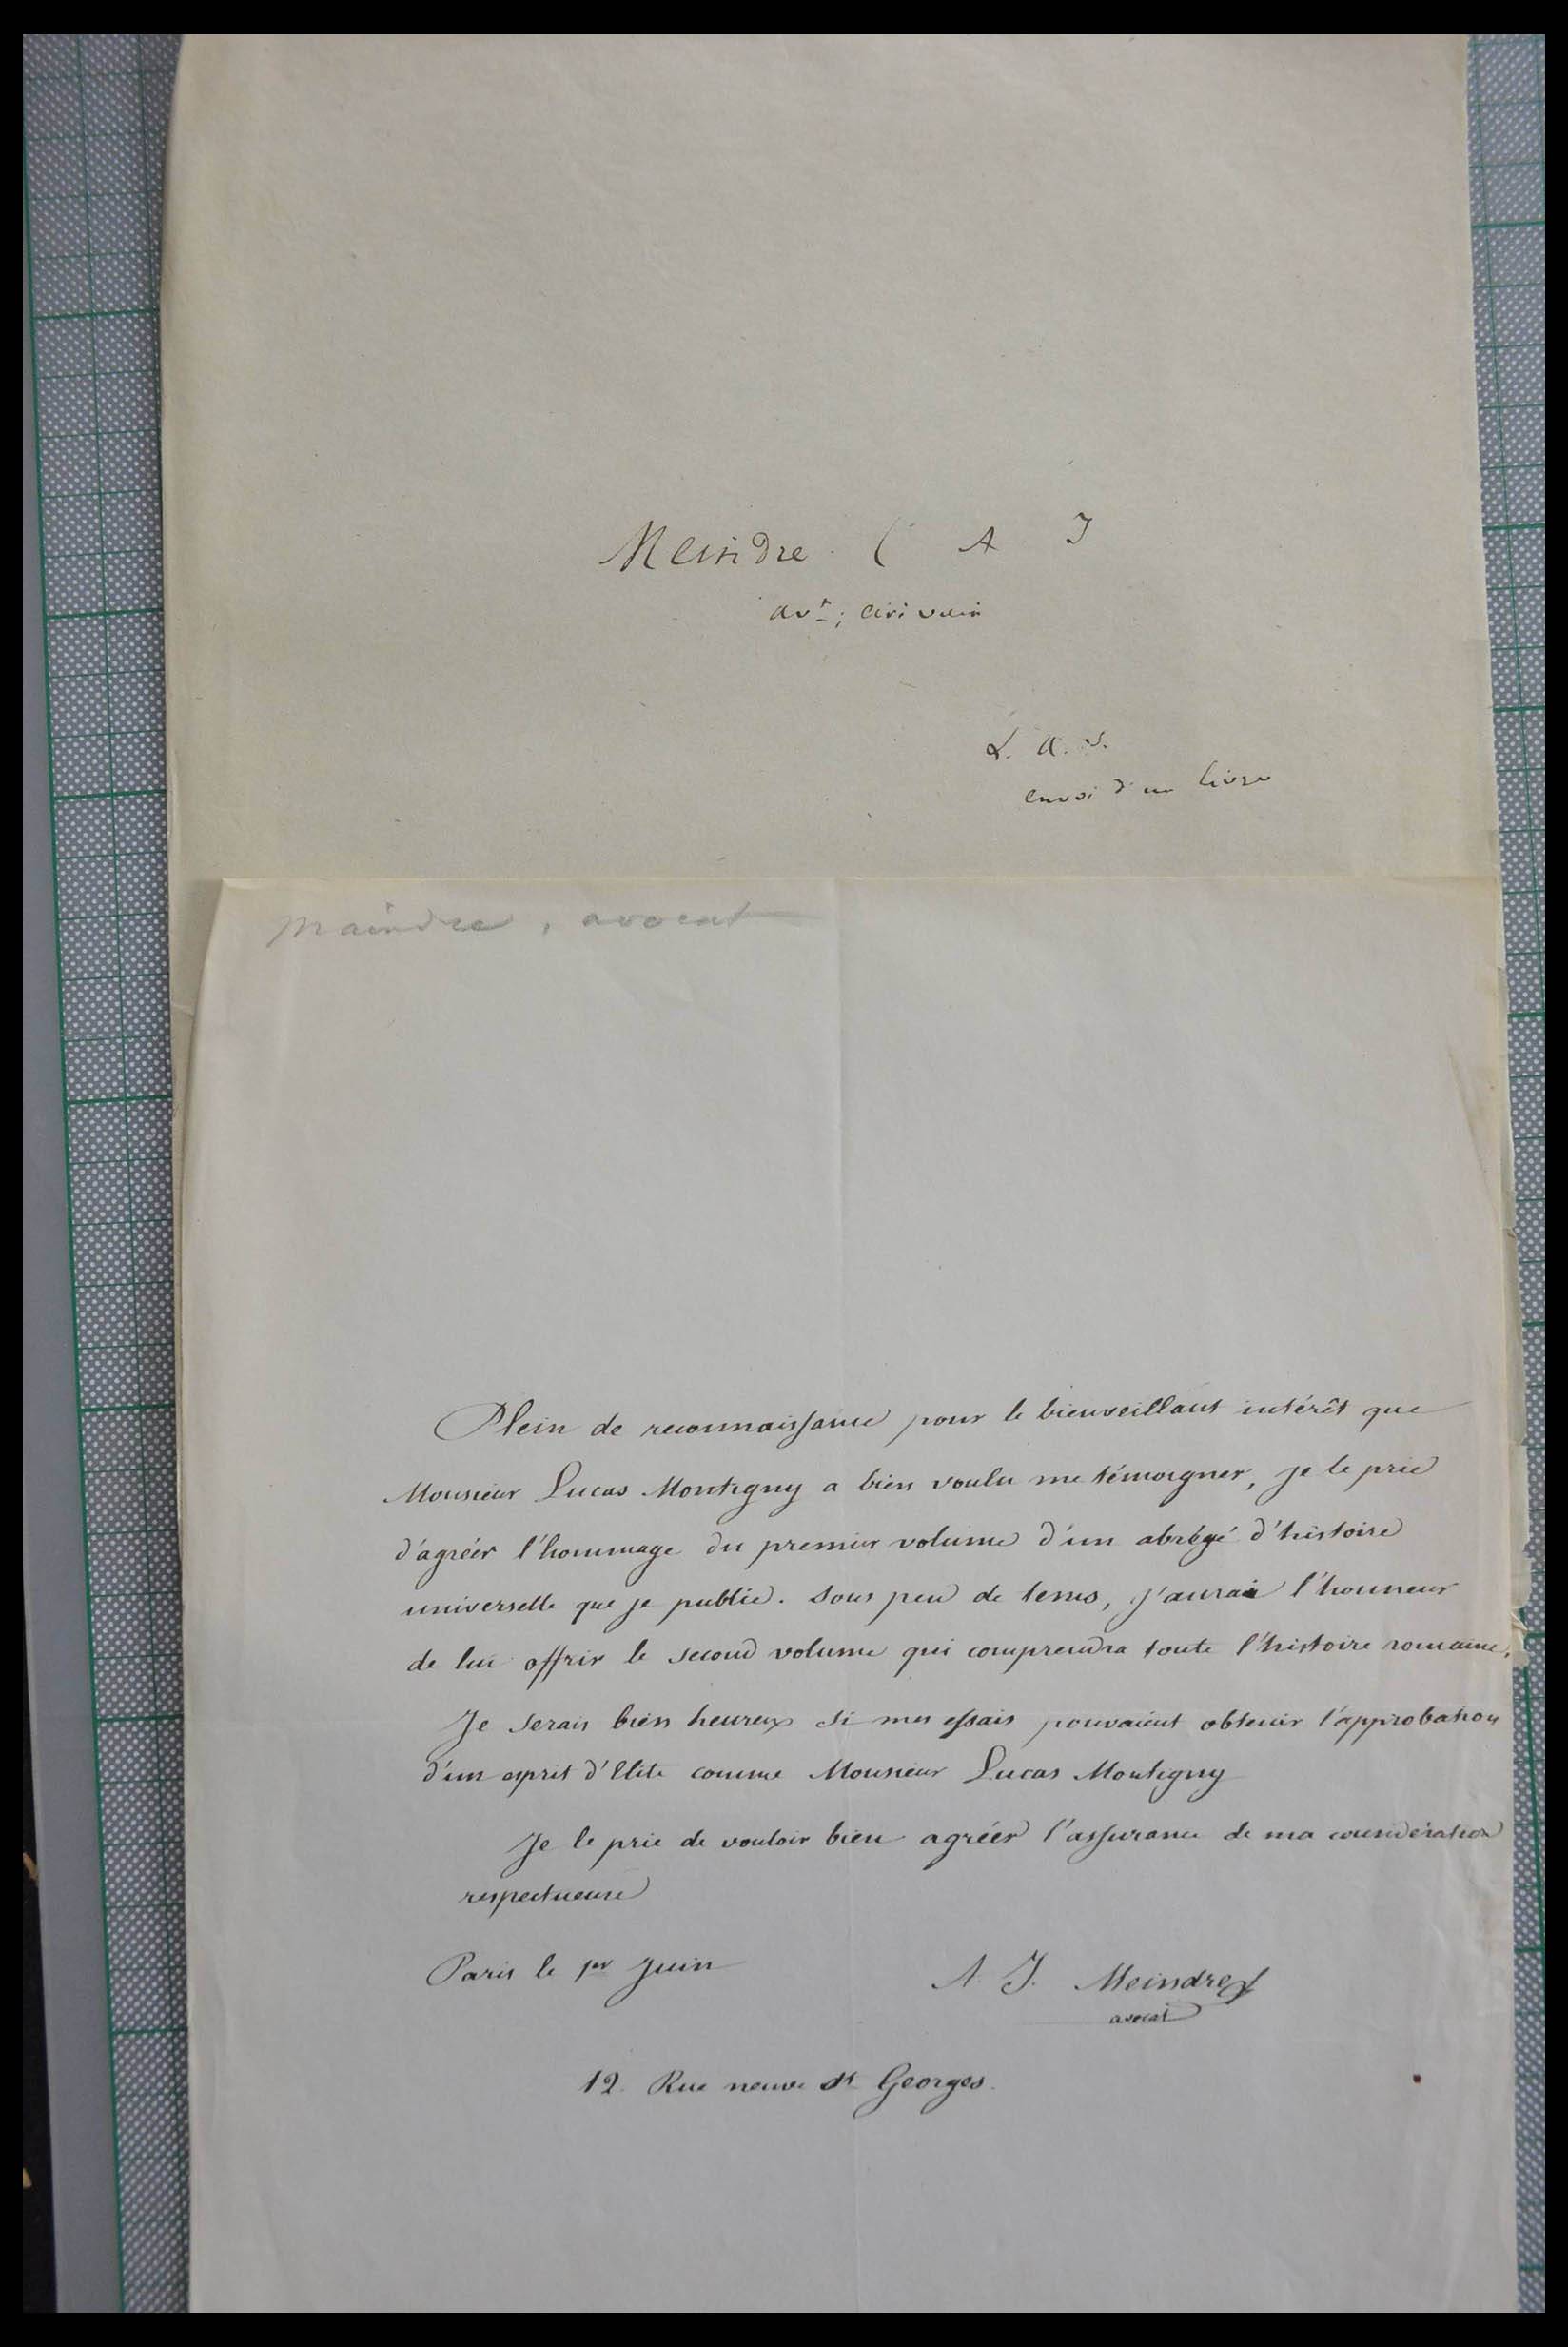 Meindre. ( A J
avt; écrivain
L. a. s.
envoi d'un livre
Maindre, avocat
Plein de reconnaissance pour le bienveillant intérêt que
Monsieur Lucas Montigny a bien voulu me témoigner, je le prie
d'agréer l'hommage du premier volume d'un abrégé d'histoire
universelle que je publie. Sous peu de tems, j'aurai l'honneur
de lui offrir le second volume qui comprendra toute l'histoire romaine.
Je serais bien heureux si mes essais pouvaient obtenir l'approbation
d'un esprit d'Elite comme Monsieur Lucas Montigny
Je le prie de vouloir bien agréer l'assurance de ma considération
respectueuse
Paris le 1er Juin
A. J. Meindre
avocat
12. Rue neuve St Georges.